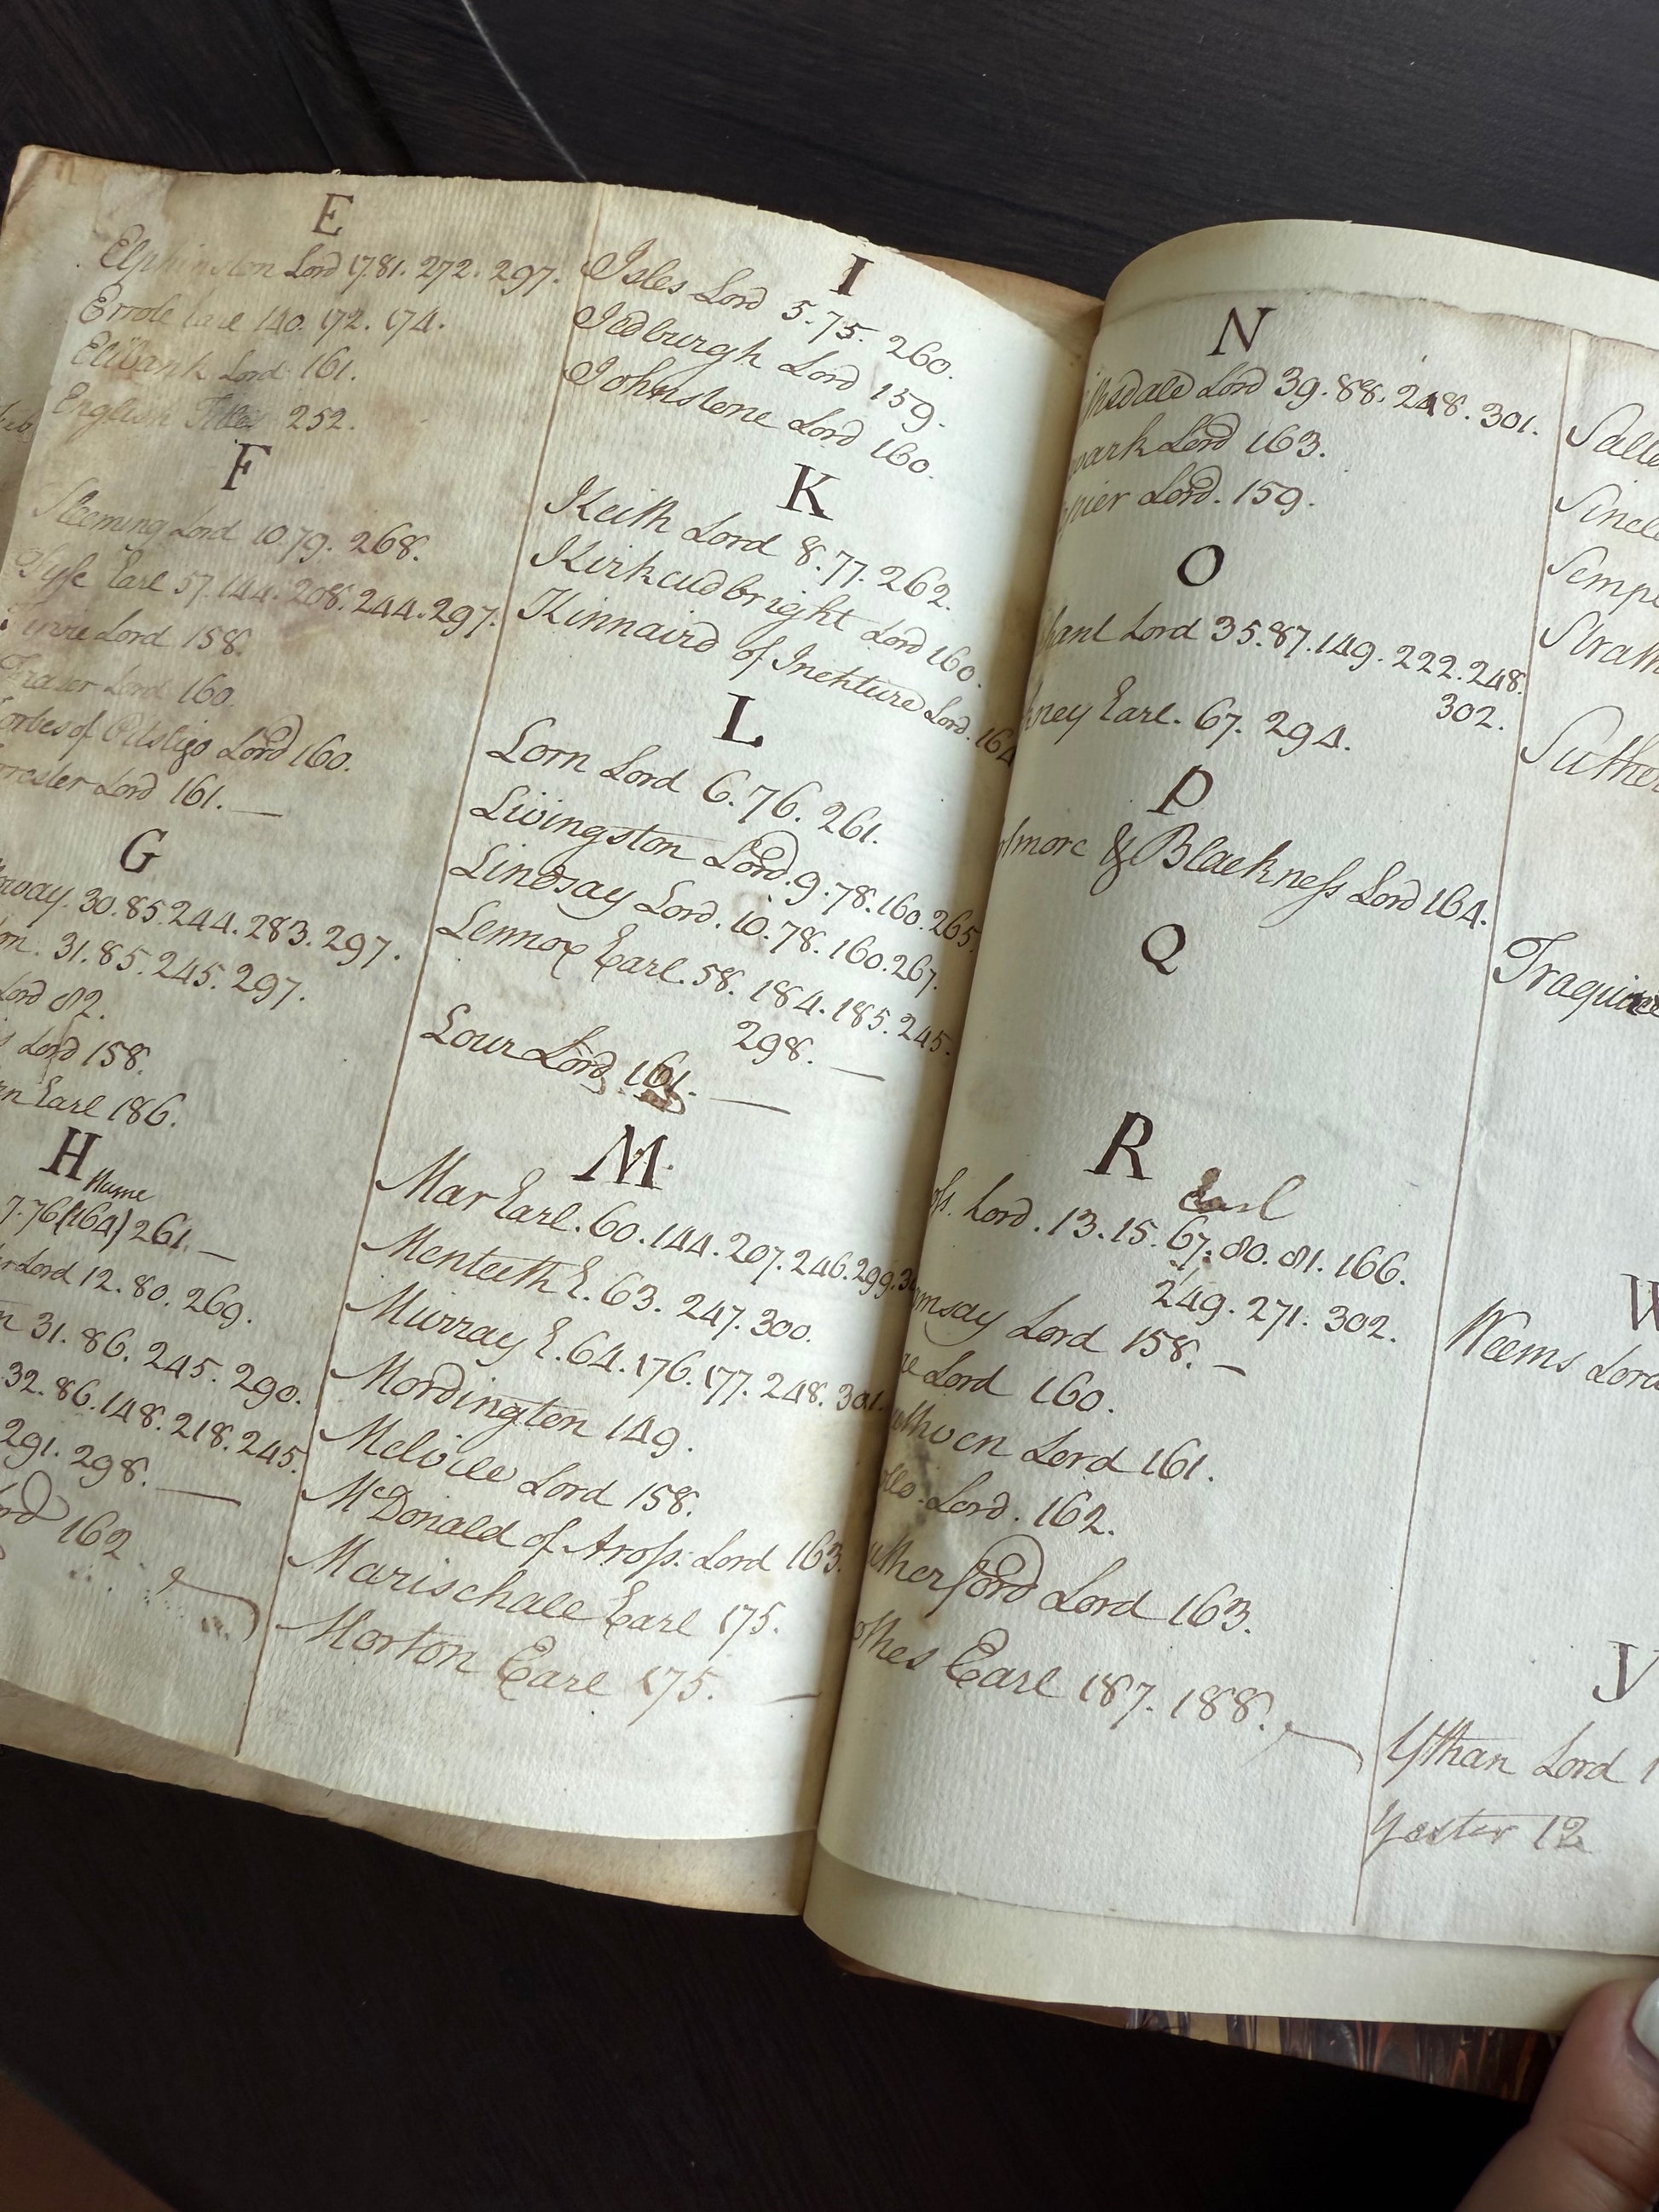 E
Elphinston Lord 17.81.272.297.
Errole Earl 140.172.174.
Elibank Lord 161.
English Titles 252.
F
Fleeming Lord 10.79.268.
Fyfe Earl 57.144.208.244.297.
Lord 158.
Fraser Lord 160.
orbes of Pitsligo Lord 160.
rrester Lord 161.
G
oway. 30.85.244.283.297.
on. 31.85.245.297.
Lord 82.
s Lord 158.
rn Earl 186.
H
Hume
7.76(164)261.
Lord 12.80.269.
n 31.86.245.290.
32.86.148.218.245.
291.298.
rd 162
I
Isles Lord 5.75.260.
Jedburgh Lord 159.
Johnstone Lord 160.
K
Keith Lord 8.77.262.
Kirkcudbright Lord 160.
Kinnaird of Inchture Lord. 164
L
Lorn Lord 6.76.261.
Livingston Lord. 9.78.160.265.
Lindsay Lord. 10.78.160.267.
Lennox Earl. 58.184.185.245.
298.
Lour Lord 161.
M
Mar Earl. 60.144.207.246.299.3
Menteeth E. 63.247.300.
Murray E. 64.176.177.248.301.
Mordington 149.
Melville Lord 158.
McDonald of Aross. Lord 163.
Marischall Earl 175.
Morton Earl 175.
N
thsdale Lord 39.88.248.301.
wark Lord 163.
pier Lord. 159.
O
hant Lord 35.87.149.222.248.
302.
kney Earl. 67.294.
P
lmore & Blackness Lord 164.
Q
R
Earl
oss. Lord. 13.15.67.80.81.166.
249.271.302.
amsay Lord 158.
Lord 160.
uthven Lord 161.
ollo. Lord. 162.
utherford Lord 163.
othes Earl 187.188.
Salt
Sincl
Semp
Strath
Suther
Traquair
W
Weems Lord
Y
Ythan Lord 1
Yester 12